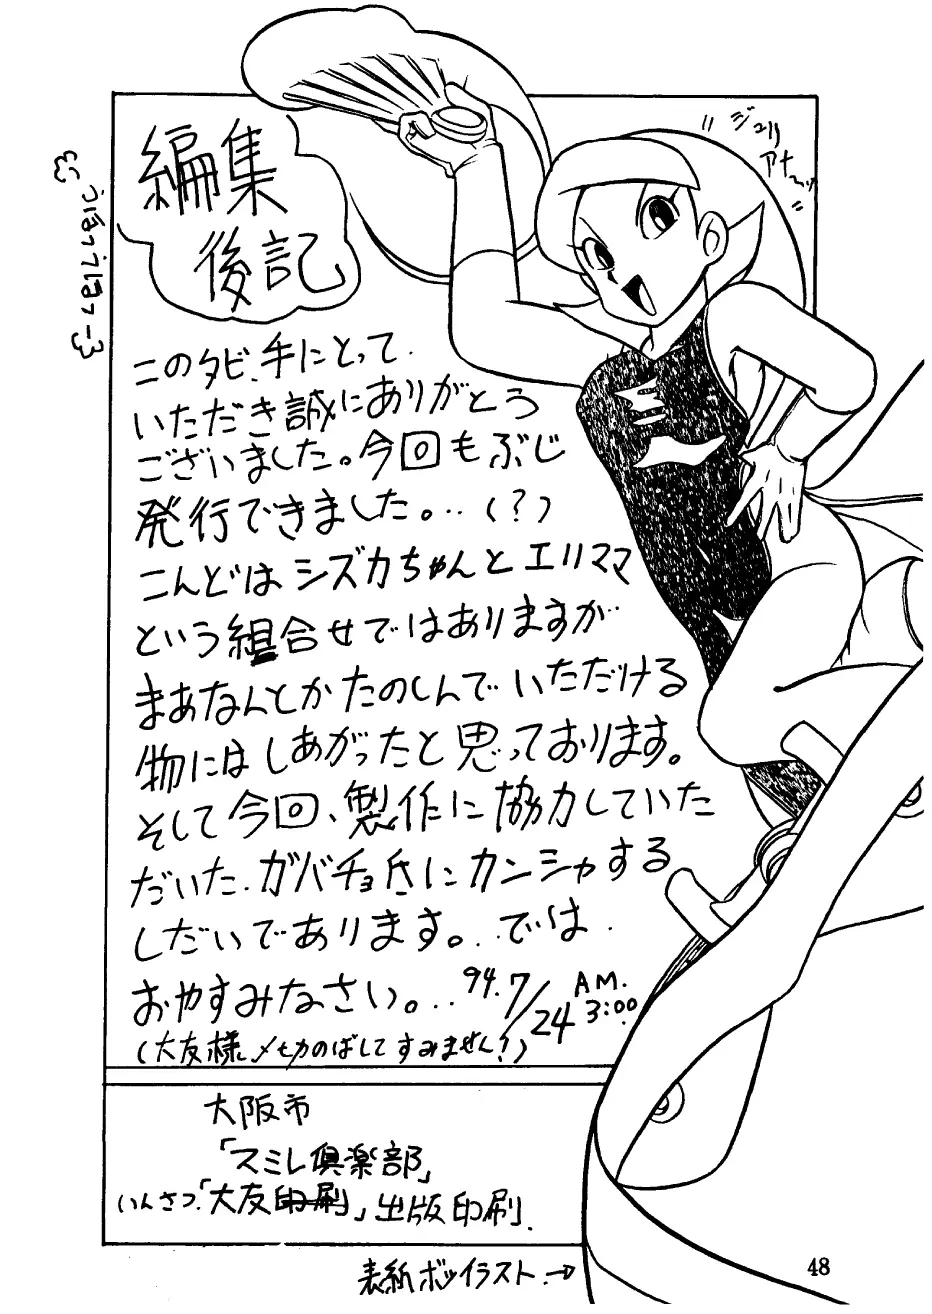 編集
後記
このタビ、手にとって
いただき誠にありがとう
ございました。今回もぶじ
発行できました。‥(?)
こんどはシズカちゃんとエリママ
という組合せではありますが
まあなんとかたのしんでいただける
物にはしあがったと思っております。
そして今回、製作に協力していた
だいた、ガバチョ氏にカンシャする
しだいであります。‥では‥
おやすみなさい。‥'94.7/24 AM.3:00
(大友様、〆切のばしてすみません!)
大阪市
「スミレ倶楽部」
いんさつ.「大友印刷」出版印刷.
表紙ボツイラスト.→
48
"ジュリ
アナ〜っ"
うほっうほっ